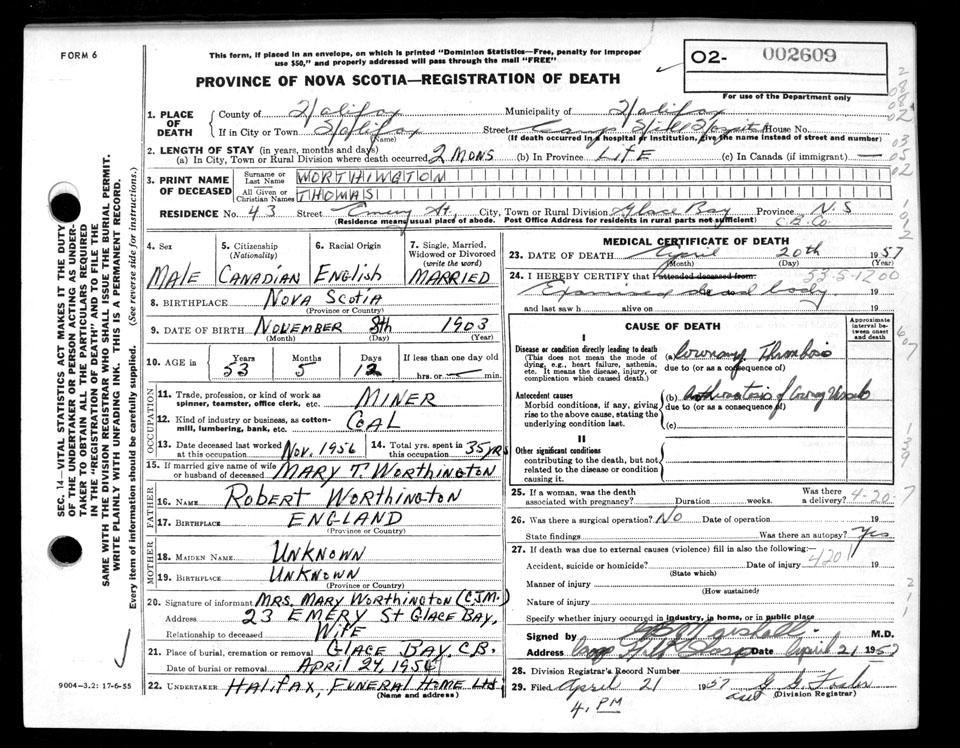 FORM 6
This form, if placed in an envelope, on which is printed "Dominion Statistics—Free, penalty for improper
use $50," and properly addressed will pass through the mail "FREE"
PROVINCE OF NOVA SCOTIA—REGISTRATION OF DEATH
O2- 002609
For use of the Department only
1. PLACE OF DEATH
County of Halifax Municipality of Halifax
If in City or Town Halifax Street Camp Hill Hospital House No.
(Name) (If death occurred in a hospital or institution, give the name instead of street and number)
2. LENGTH OF STAY (in years, months and days)
(a) In City, Town or Rural Division where death occurred 2 MONS (b) In Province LIFE (c) In Canada (if immigrant) —
3. PRINT NAME OF DECEASED
Surname or Last Name WORTHINGTON
All Given or Christian Names THOMAS
RESIDENCE No. 43 Street Emery St., City, Town or Rural Division Glace Bay Province N.S
(Residence means usual place of abode. Post Office Address for residents in rural parts not sufficient) C.B. Co.
4. Sex
MALE
5. Citizenship
(Nationality)
CANADIAN
6. Racial Origin
English
7. Single, Married,
Widowed or Divorced
(write the word)
MARRIED
8. BIRTHPLACE NOVA SCOTIA
(Province or Country)
9. DATE OF BIRTH NOVEMBER 8th 1903
(Month) (Day) (Year)
10. AGE in Years Months Days If less than one day old
53 5 12 hrs. or — min.
OCCUPATION
11. Trade, profession, or kind of work as
spinner, teamster, office clerk, etc. MINER
12. Kind of industry or business, as cotton-
mill, lumbering, bank, etc. COAL
13. Date deceased last worked
at this occupation Nov. 1956
14. Total yrs. spent in
this occupation 35 YRS
15. If married give name of wife
or husband of deceased MARY T. WORTHINGTON
FATHER
16. Name ROBERT WORTHINGTON
17. Birthplace ENGLAND
(Province or Country)
MOTHER
18. Maiden Name UNKNOWN
19. Birthplace UNKNOWN
(Province or Country)
20. Signature of informant MRS. MARY WORTHINGTON (C.J.M.)
Address 23 EMERY ST GLACE BAY,
Relationship to deceased WIFE
21. Place of burial, cremation or removal GLACE BAY, C.B.
Date of burial or removal APRIL 24, 1956
22. Undertaker HALIFAX, FUNERAL HOME LTD.
(Name and address)
MEDICAL CERTIFICATE OF DEATH
23. DATE OF DEATH April 20th 1957
(Month) (Day) (Year)
24. I HEREBY CERTIFY that I attended deceased from: 53-5-1200
Examined dead body 19
and last saw h alive on 19
CAUSE OF DEATH
Approximate
interval be-
tween onset
and death
I
Disease or condition directly leading to death
(This does not mean the mode of
dying, e.g., heart failure, asthenia,
etc. It means the disease, injury, or
complication which caused death.)
(a) Coronary Thrombosis
due to (or as a consequence of)
Antecedent causes
Morbid conditions, if any, giving
rise to the above cause, stating the
underlying condition last.
(b) of Coronary Vessels
due to (or as a consequence of)
(c)
II
Other significant conditions
contributing to the death, but not
related to the disease or condition
causing it.
25. If a woman, was the death
associated with pregnancy? Duration weeks. Was there
a delivery? 4-20-7
26. Was there a surgical operation? No Date of operation 19
State findings Was there an autopsy? Yes
27. If death was due to external causes (violence) fill in also the following:—
Accident, suicide or homicide? Date of injury 4201 19
(State which)
Manner of injury
(How sustained)
Nature of injury
Specify whether injury occurred in industry, in home, or in public place
Signed by Marshall M.D.
Address Camp Hill Hosp Date April 21 1957
28. Division Registrar's Record Number
29. Filed April 21 1957 G. G. Foster
4. PM (Division Registrar)
SEC. 14—VITAL STATISTICS ACT MAKES IT THE DUTY
OF THE UNDERTAKER OR PERSON ACTING AS UNDER-
TAKER TO OBTAIN ALL THE PARTICULARS REQUIRED
IN THE "REGISTRATION OF DEATH" AND TO FILE THE
SAME WITH THE DIVISION REGISTRAR WHO SHALL ISSUE THE BURIAL PERMIT.
WRITE PLAINLY WITH UNFADING INK. THIS IS A PERMANENT RECORD.
Every item of information should be carefully supplied. (See reverse side for instructions.)
9004-3.2: 17-6-55